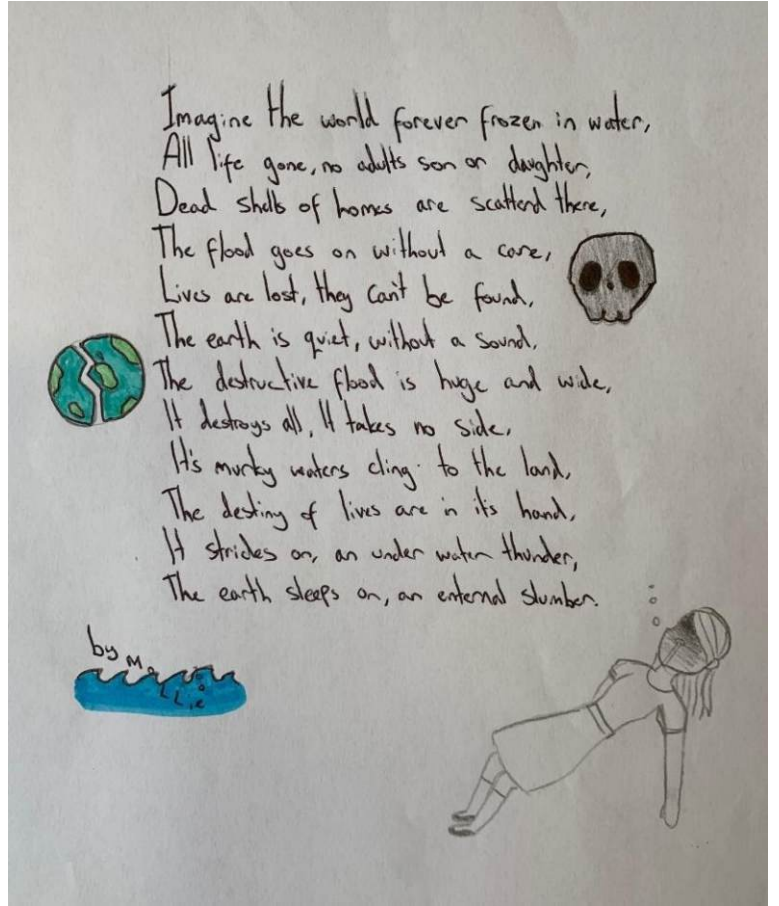 Imagine the world forever frozen in water,
All life gone, no adults son or daughter,
Dead shells of homes are scatterd there,
The flood goes on without a care,
Lives are lost, they can't be found,
The earth is quiet, without a sound,
The destructive flood is huge and wide,
It destroys all, It takes no side,
It's murky waters cling to the land,
The destiny of lives are in its hand,
It strides on, an under water thunder,
The earth sleeps on, an enternal slumber.
by Mollie